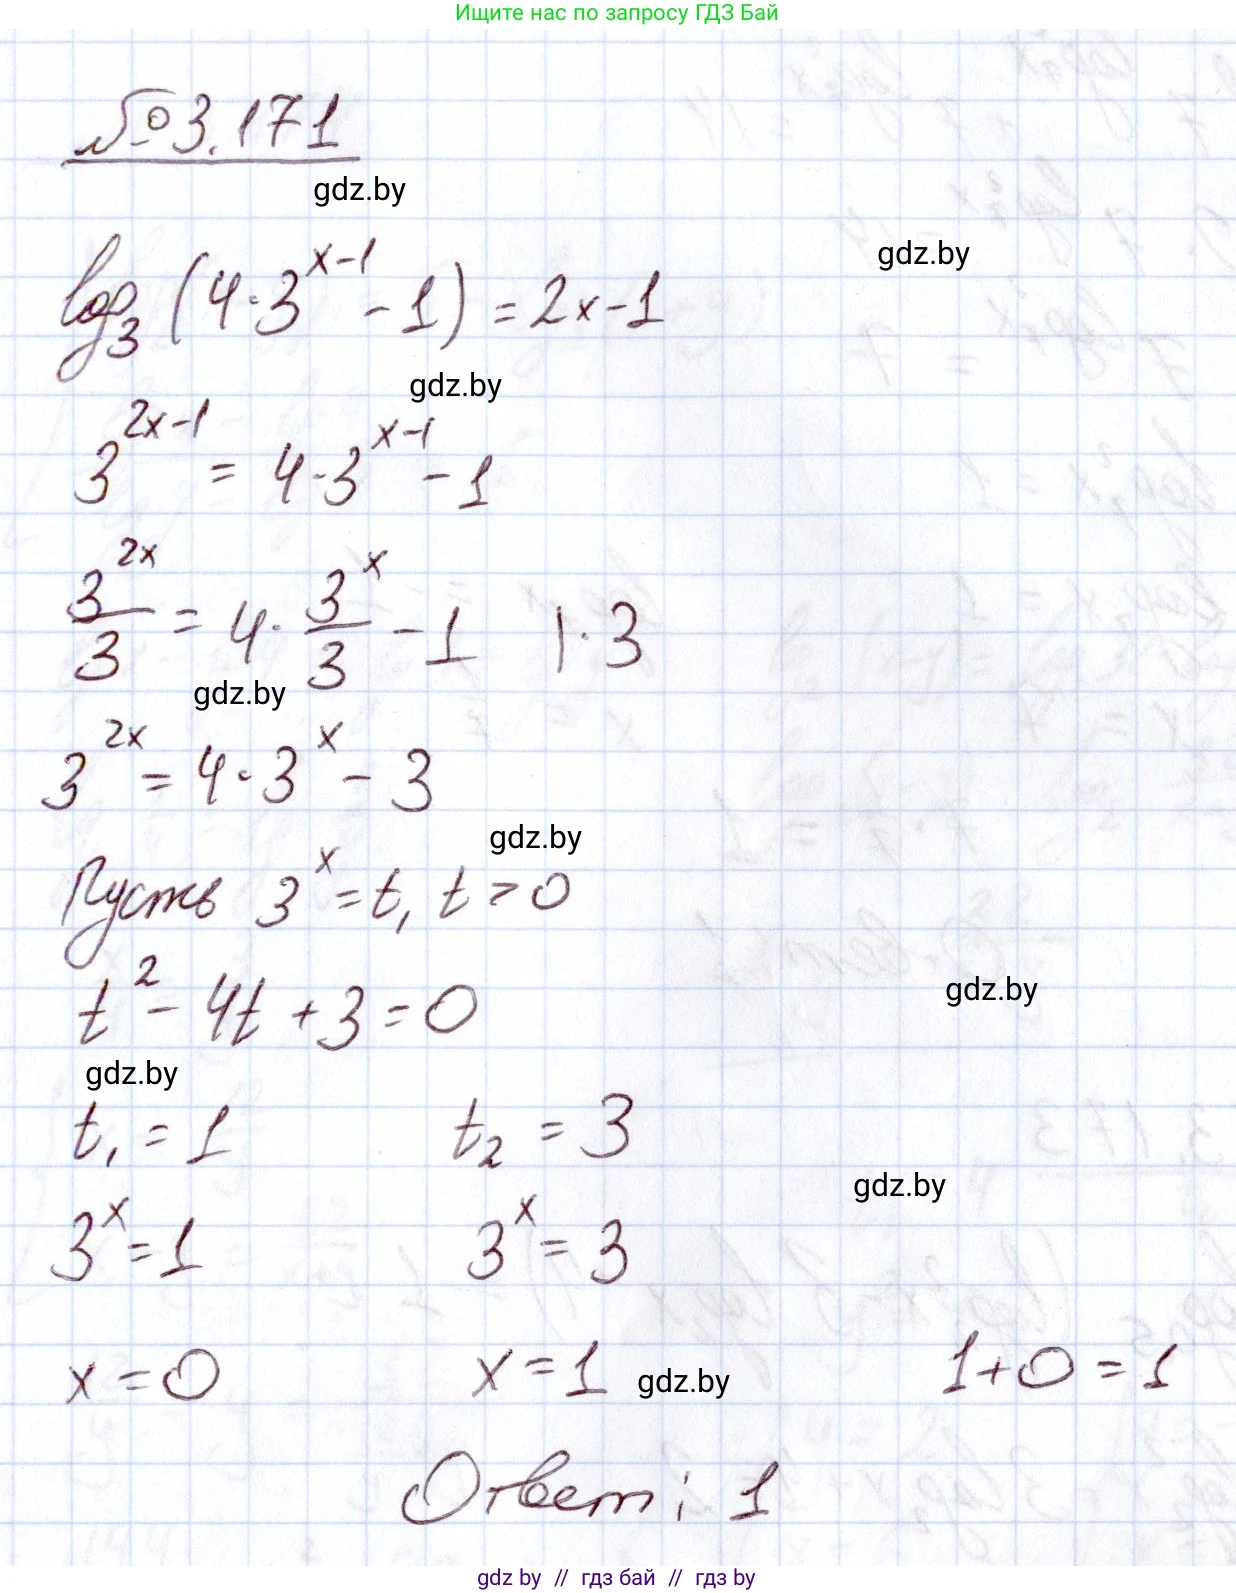 Ищите нас по запросу ГДЗ Бай
№3.171
gdz.by
gdz.by
log₃(4·3^(x-1) - 1) = 2x-1
gdz.by
3^(2x-1) = 4·3^(x-1) - 1
3^(2x)/3 = 4·3^x/3 - 1 |·3
gdz.by
3^(2x) = 4·3^x - 3
gdz.by
Пусть 3^x = t, t > 0
t² - 4t + 3 = 0
gdz.by
gdz.by
t₁ = 1 t₂ = 3
gdz.by
3^x = 1 3^x = 3
x = 0 x = 1 gdz.by 1+0 = 1
Ответ: 1
gdz by // гдз бай // гдз by